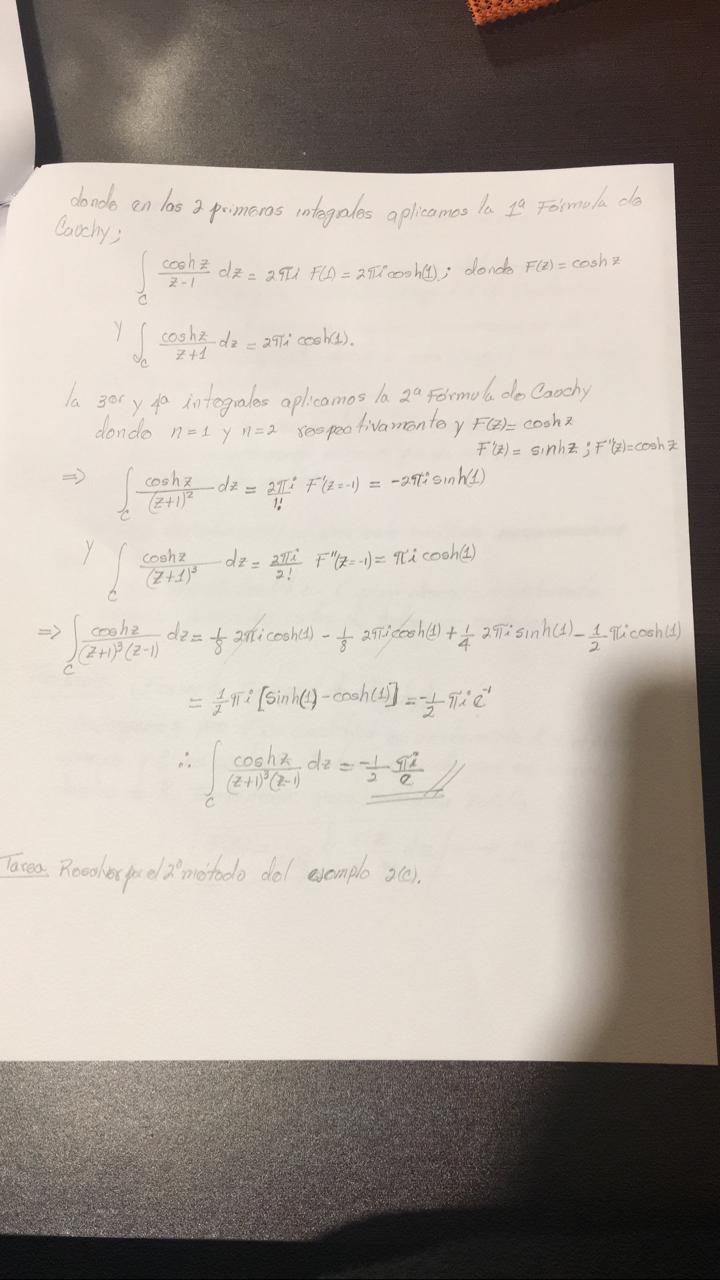 donde en las 2 primeras integrales aplicamos la 1ª Fórmula de
Cauchy;
∫_C cosh z/(z-1) dz = 2πi F(1) = 2πi cosh(1); donde F(z) = cosh z
y ∫_C cosh z/(z+1) dz = 2πi cosh(1).
la 3er y 4ª integrales aplicamos la 2ª Fórmula de Cauchy
donde n=1 y n=2 respectivamente y F(z)= cosh z
F'(z) = sinh z ; F''(z)=cosh z
=> ∫_C cosh z/(z+1)² dz = 2πi/1! F'(z=-1) = -2πi sinh(1)
y ∫_C cosh z/(z+1)³ dz = 2πi/2! F''(z=-1) = πi cosh(1)
=> ∫_C cosh z/((z+1)³(z-1)) dz = 1/8 2πi cosh(1) - 1/8 2πi cosh(1) + 1/4 2πi sinh(1) - 1/2 πi cosh(1)
= 1/2 πi [sinh(1) - cosh(1)] = -1/2 πi e⁻¹
∴ ∫_C cosh z/((z+1)³(z-1)) dz = -1/2 πi/e
Tarea Resolver por el 2º método del ejemplo 2(c).